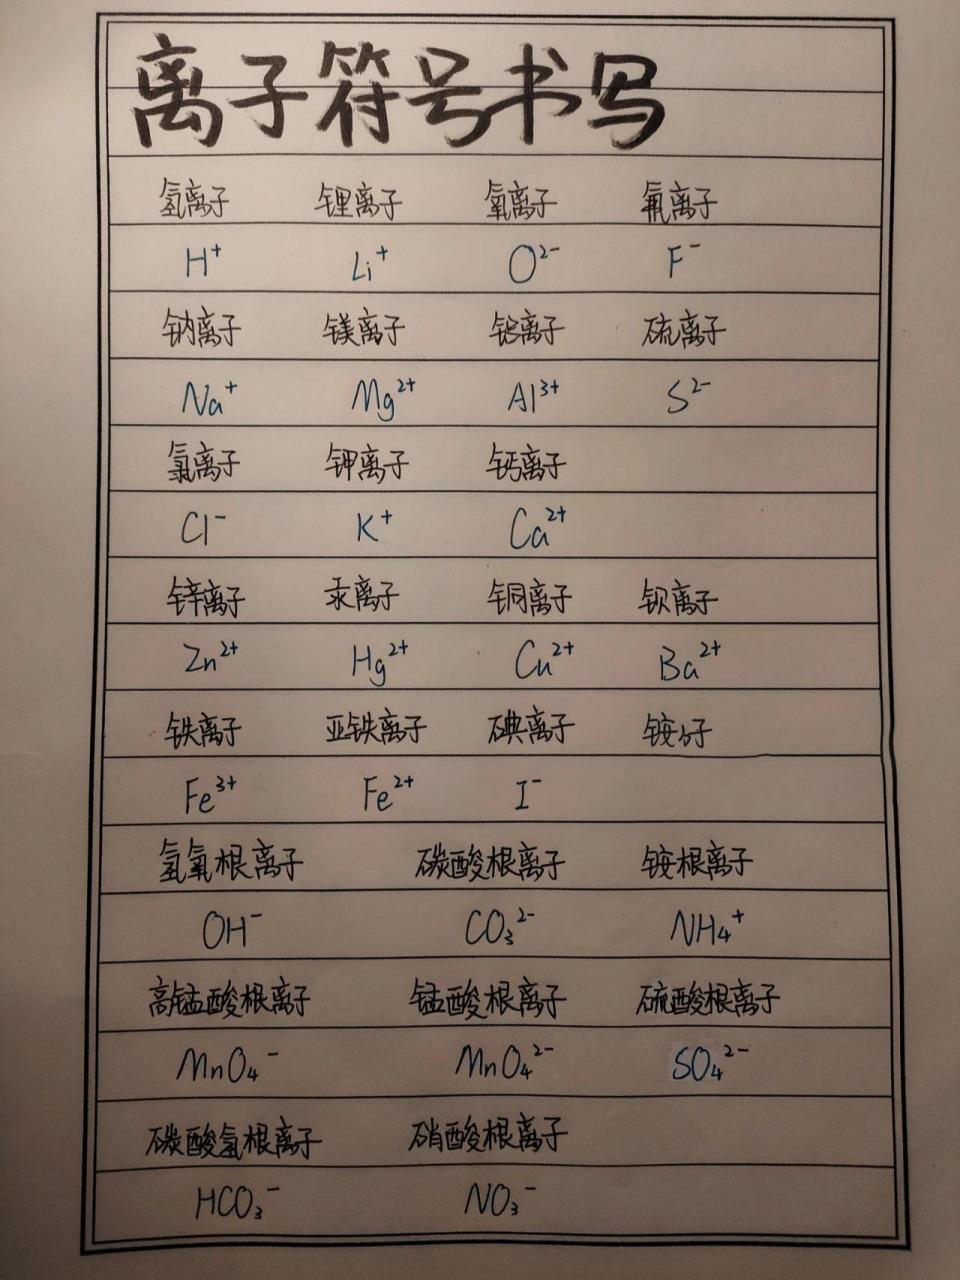 离子符号书写
氢离子 锂离子 氧离子 氟离子
H⁺ Li⁺ O²⁻ F⁻
钠离子 镁离子 铝离子 硫离子
Na⁺ Mg²⁺ Al³⁺ S²⁻
氯离子 钾离子 钙离子
Cl⁻ K⁺ Ca²⁺
锌离子 汞离子 铜离子 钡离子
Zn²⁺ Hg²⁺ Cu²⁺ Ba²⁺
铁离子 亚铁离子 碘离子
Fe³⁺ Fe²⁺ I⁻
氢氧根离子 碳酸根离子 铵根离子
OH⁻ CO₃²⁻ NH₄⁺
高锰酸根离子 锰酸根离子 硫酸根离子
MnO₄⁻ MnO₄²⁻ SO₄²⁻
碳酸氢根离子 硝酸根离子
HCO₃⁻ NO₃⁻